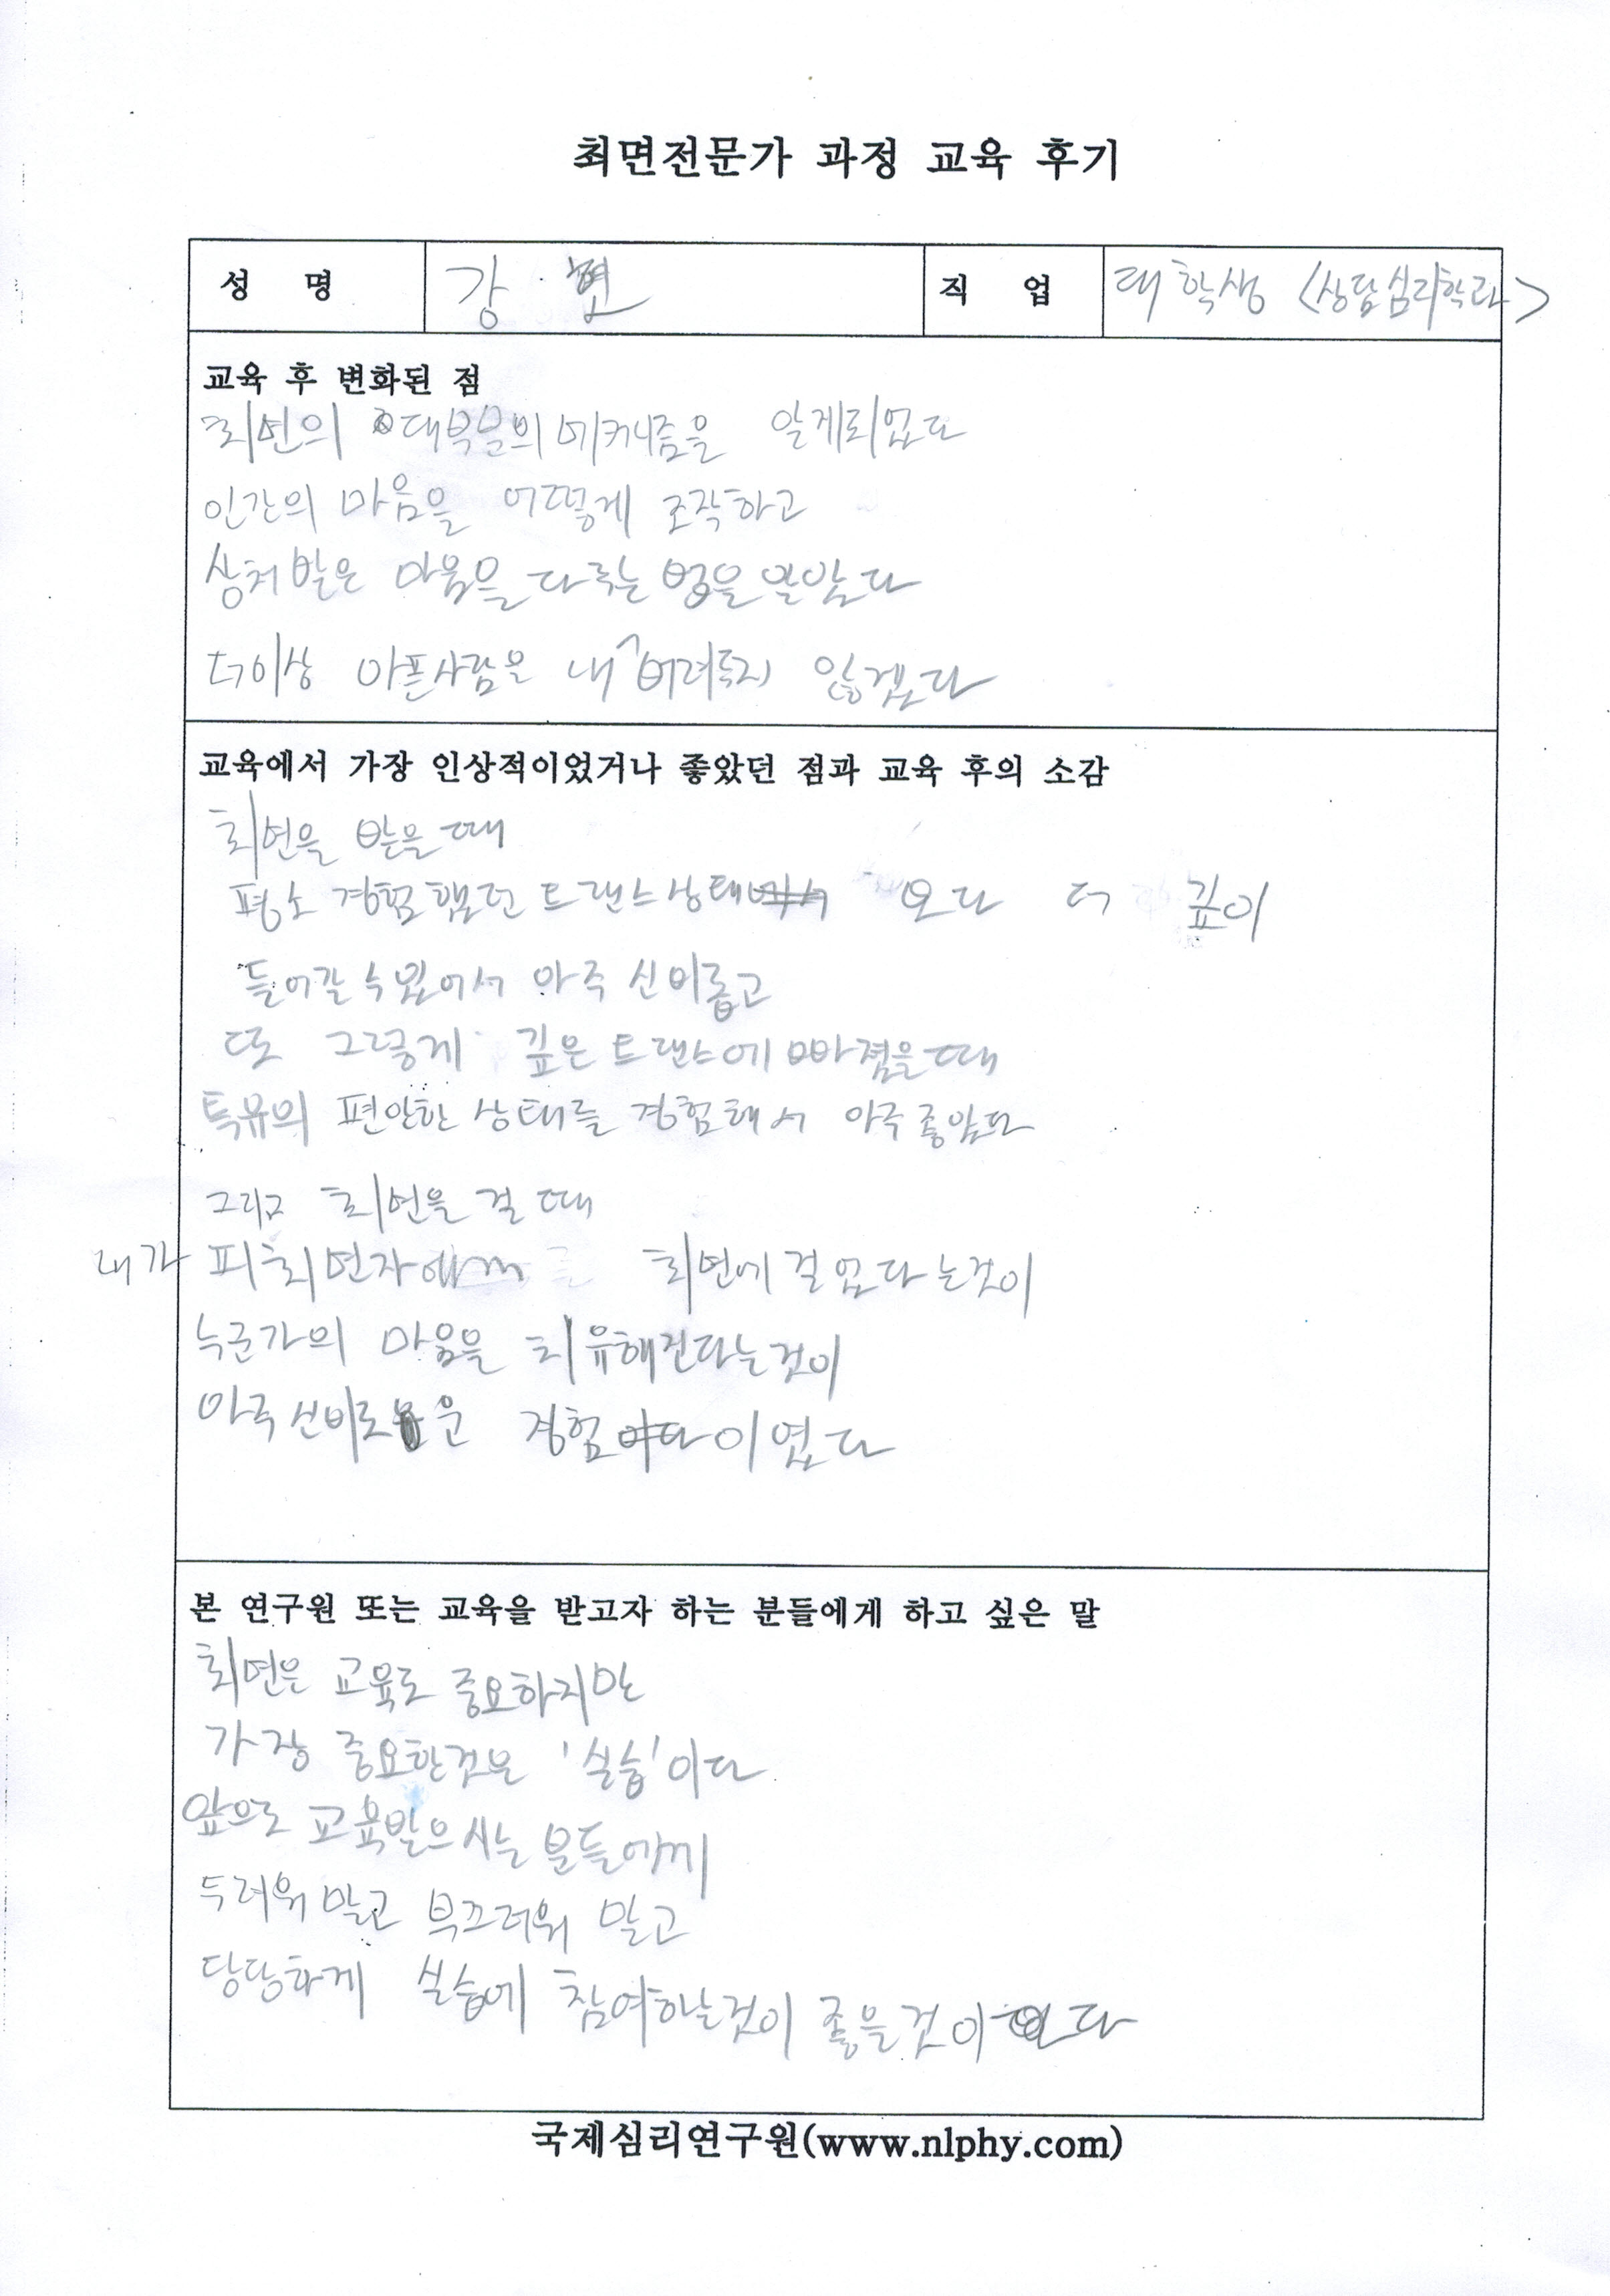 최면전문가 과정 교육 후기
성 명 강 현 직 업 대학생 <상담심리학과>
교육 후 변화된 점
최면의 대부분의 메커니즘을 알게되었다
인간의 마음을 어떻게 조작하고
상처받은 마음을 다루는 법을 알았다
더이상 아픈사람을 내버려두지 않겠다
교육에서 가장 인상적이었거나 좋았던 점과 교육 후의 소감
최면을 받을때
평소 경험했던 트랜스상태보다 더 깊이
들어갈수있어서 아주 신비롭고
또 그렇게 깊은 트랜스에 빠졌을때
특유의 편안한 상태를 경험해서 아주좋았다
그리고 최면을 걸 때
내가 피최면자 최면에 걸었다는것이
누군가의 마음을 치유해준다는것이
아주신비로운 경험이였다
본 연구원 또는 교육을 받고자 하는 분들에게 하고 싶은 말
최면은 교육도 중요하지만
가장 중요한것은 '실습'이다
앞으로 교육받으시는 분들에게
두려워말고 부끄러워 말고
당당하게 실습에 참여하는것이 좋을것이다
국제심리연구원(www.nlphy.com)